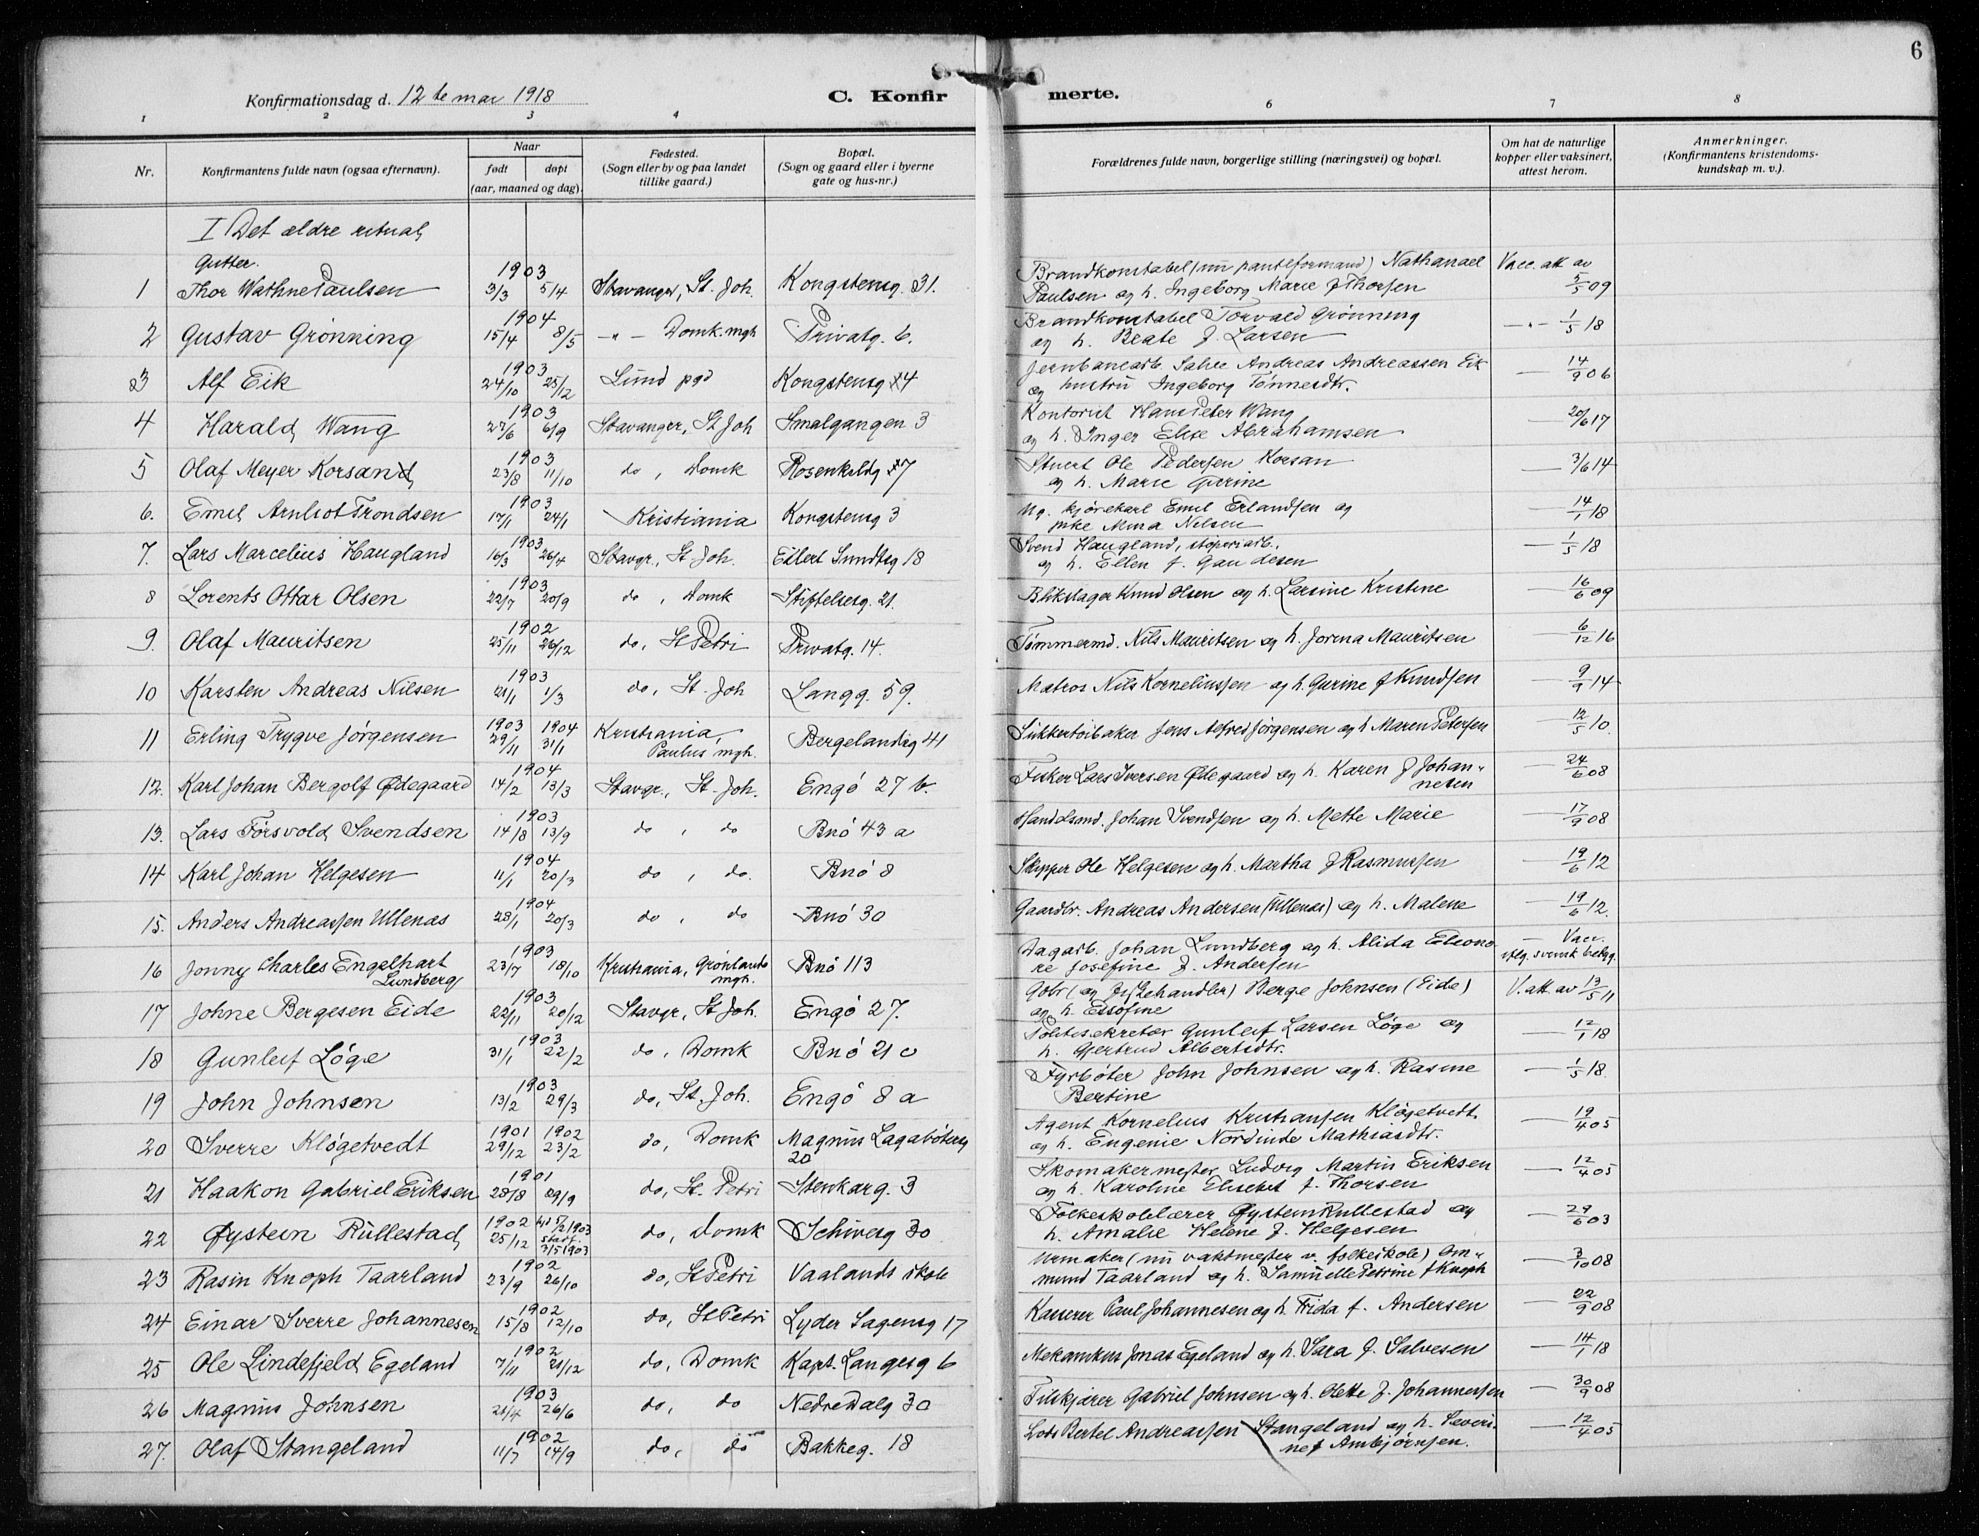 6
Konfirmationsdag d. 12te mai 1918
C. Konfirmerte.
1 2 3 4 6 7 8
Nr. Konfirmantens fulde navn (ogsaa efternavn). Naar født døpt (aar, maaned og dag). Fødested. (Sogn eller by og paa landet tillike gaard.) Bopæl. (Sogn og gaard eller i byerne gate og hus-nr.) Forældrenes fulde navn, borgerlige stilling (næringsvei) og bopæl. Om hat de naturlige kopper eller vaksinert, attest herom. Anmerkninger. (Konfirmantens kristendoms-kundskap m. v.).
I Det ældre ritual
Gutter.
1 Thor Wathne Paulsen 1903 3/3 5/4 Stavanger, St. Joh. Kongstensg. 31. Brandkonstabel (nu pantelformand) Nathanael Vacc. att. av
Paulsen og h. Ingeborg Marie f Thorsen 5/5 09
2 Gustav Grønning 1904 15/4 8/5 -"- Domk. mgh Privatg. 6. Brandkonstabel Torvald Grønning
og h. Beate f. Larsen -"- 1/5 18
3 Alf Eik 1903 24/10 25/12 Lund pgd Kongstensg 44 Jernbanearb. Salve Andreas Andreassen Eik
og hustru Ingeborg Tønnesdtr. — 14/9 06
4 Harald Wang 1903 27/6 6/9 Stavanger, St Joh Smalgangen 3 Kontorist Hans Peter Wang
og h. Inger Elise Abrahamsen — 20/6 17
5 Olaf Meyer Korsand 1903 23/8 11/10 do, Domk Rosenkildg 7 Stuert Ole Pedersen Korsan
og h. Marie Gurine — 3/6 14
6. Emil Arnliot Trondsen 1903 17/1 24/1 Kristiania Kongstensg 3 Ug. kjørekarl Emil Erlandsen og
pike Mina Nilsen — 14/1 18
7. Lars Marcelius Haugland 1903 16/3 26/4 Stavgr., St Joh. Eilert Sundtsg 18 Svend Haugland, støperiarb.,
og h. Ellen f. Gaudesen — 1/5 18
8 Lorents Ottar Olsen 1903 22/7 20/9 do, Domk Stiftelsesg. 21. Blikslager Knud Olsen og h. Larsine Kristine — 16/6 09
9. Olaf Mauritsen 1902 25/11 26/12 do, St Petri Privatg. 14. Tømmermd. Nils Mauritsen og h. Jorina Mauritsen — 6/12 16
10 Karsten Andreas Nilsen 1903 21/1 1/3 do, St. Joh Langg. 59. Matros Nils Korneliussen og h. Gurine f Knudsen — 9/9 14
11 Erling Trygve Jørgensen 1903 29/11 1904 31/1 Kristiania, Paulus mgh. Bergelandsg 41 Sukkertøibaker Jens Alfred Jørgensen og h Maren Petersen — 12/5 10.
12. Karl Johan Bergolf Ødegaard 1904 14/2 13/3 Stavgr., St. Joh. Engø 27 b. Fisker Lars Iversen Ødegaard og h. Karen f Johannesen — 24/6 08
13. Lars Forsvold Svendsen 1903 14/8 13/9 do, do Bnø 43 a Handlsmd. Johan Svendsen og h. Mette Marie — 17/9 08
14 Karl Johan Helgesen 1904 11/1 20/3 do, do. Bnø 8 Skipper Ole Helgesen og h. Martha f Rasmussen — 19/6 12
15. Anders Andreassen Ullenæs 1904 28/1 20/3 do, do Bnø 30 Gaardbr. Andreas Andersen (Ullenæs) og h. Malene — 19/6 12.
16 Jonny Charles Engelhart Lundberg 1903 23/7 18/10 Kristiania, Grønlands mgh. Bnø 113 Dagarb. Johan Lundberg og h. Alida Eleono-
re Josefine f. Andersen — Vacc. iflg. svensk betyg.
17 Johne Bergesen Eide 1903 22/11 20/12 Stavgr, St Joh. Engø 27. Gbr (og fiskehandler) Berge Johnsen (Eide)
og h. Essofine V. att av 13/5 11
18 Gunleif Løge 1903 31/1 22/2 do, Domk Bnø 21 c Politisekretær Gunleif Larsen Løge og
h. Gjertrud Albertsdtr. — 12/1 18
19 John Johnsen 1903 13/2 29/3 do, St. Joh. Engø 8 a Fyrbøter John Johnsen og h. Rasine
Bertine — 1/5 18.
20 Sverre Kløgetvedt 1901 29/12 1902 23/2 do, Domk Magnus Lagabøtersg 20 Agent Kornelius Kristiansen Kløgetvedt
og h. Eugenie Nordinde Mathiasdtr. — 19/4 05
21 Haakon Gabriel Eriksen 1901 28/8 29/9 do, St. Petri Stenkarg. 3 Skomakermester Ludvig Martin Eriksen
og h. Karoline Elisebet f. Thorsen — 12/4 05
22 Øystein Rullestad 1902 25/12 5/2 1903 stadf. 3/5 1903 do, Domk Schivesg 30 Folkeskolelærer Øystein Rullestad og
h. Amalie Helene f. Helgesen — 29/6 03
23 Rasin Knoph Taarland 1902 23/9 26/10 do, St Petri Vaalands skole Urmaker (nu vaktmester v. folkeskole) Om-
mund Taarland og h. Samuelle Petrine f Knoph — 3/10 08
24 Einar Sverre Johannesen 1902 15/8 12/10 do, St Petri Lyder Sagensg 17 Kasserer Paul Johannesen og h. Frida f. Andersen — 22/9 08
25 Ole Lindefjeld Egeland 1902 7/11 21/12 do, Domk Kapt. Langesg 6 Mekanikus Jonas Egeland og h. Sara f. Salvesen — 14/1 18
26 Magnus Johnsen 1903 21/4 26/6 do, do Nedre Dalg 30 Tilskjærer Gabriel Johnsen og h. Olette f. Johannessen — 30/9 08
27. Olaf Stangeland 1902 11/7 14/9 do, do Bakkeg. 18 Lods Bertel Andreassen Stangeland og h. Severi-
ne f Ambjørnsen. — 12/4 05